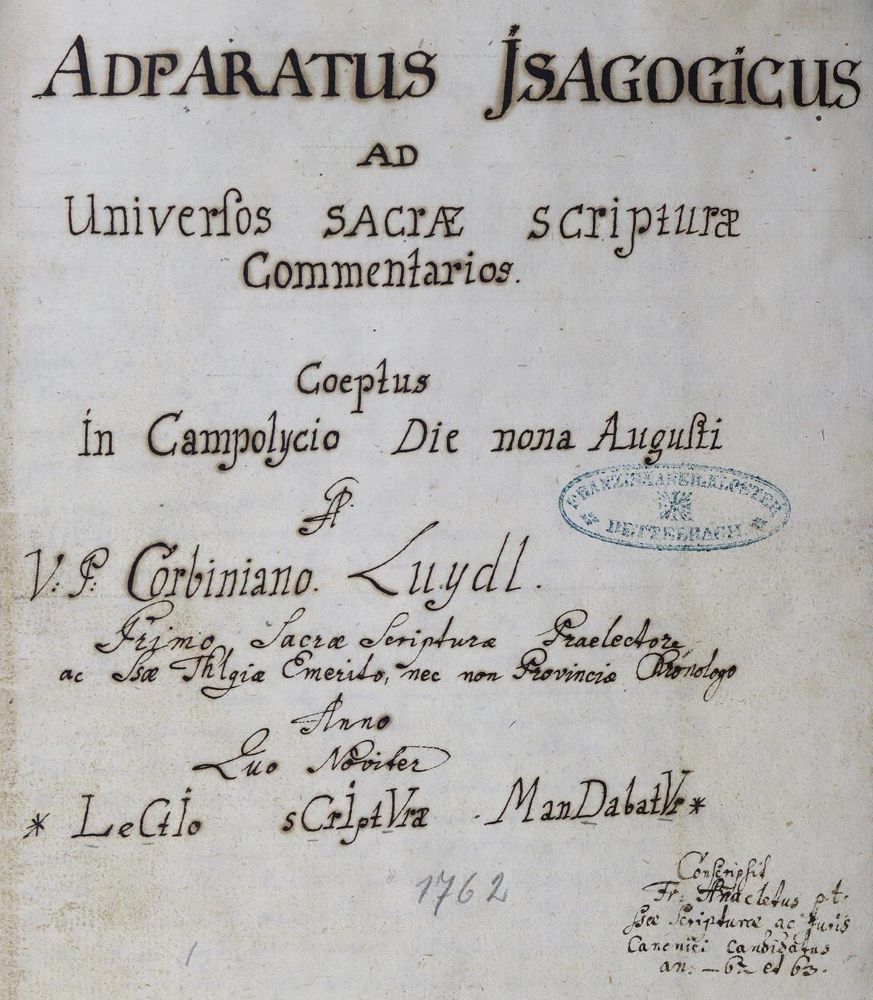 ADPARATUS JSAGOGICUS
AD
Universos SACRÆ scripturæ
Commentarios.
Coeptus
in Campolycio Die nona Augusti
FRANZISKANER-KLOSTER
DETTELBACH
A
V: P: Corbiniano. Luydl.
Primo Sacræ Scripturæ Praelectore
ac Ssæ Thlgiæ Emerito, nec non Provinciæ Chronologo
Anno
Quo Noviter
* LeCtIo sCrIptVræ ManDabatVr *
1762
Conscripsit
Fr: Anacletus p.t.
Ssæ Scripturæ ac Juris
Canonici candidatus
an: 62 et 63.